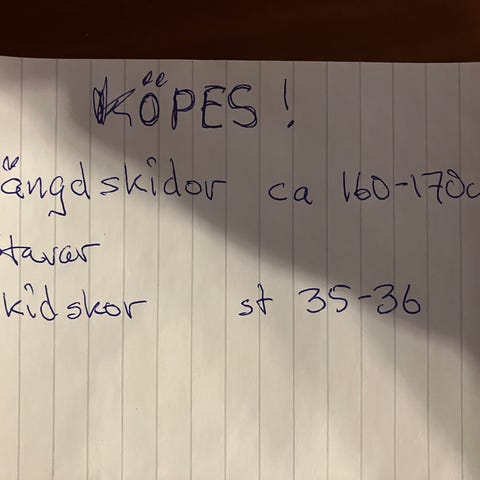 KÖPES!
ängdskidor ca 160-170c
tavar
kidskor st 35-36